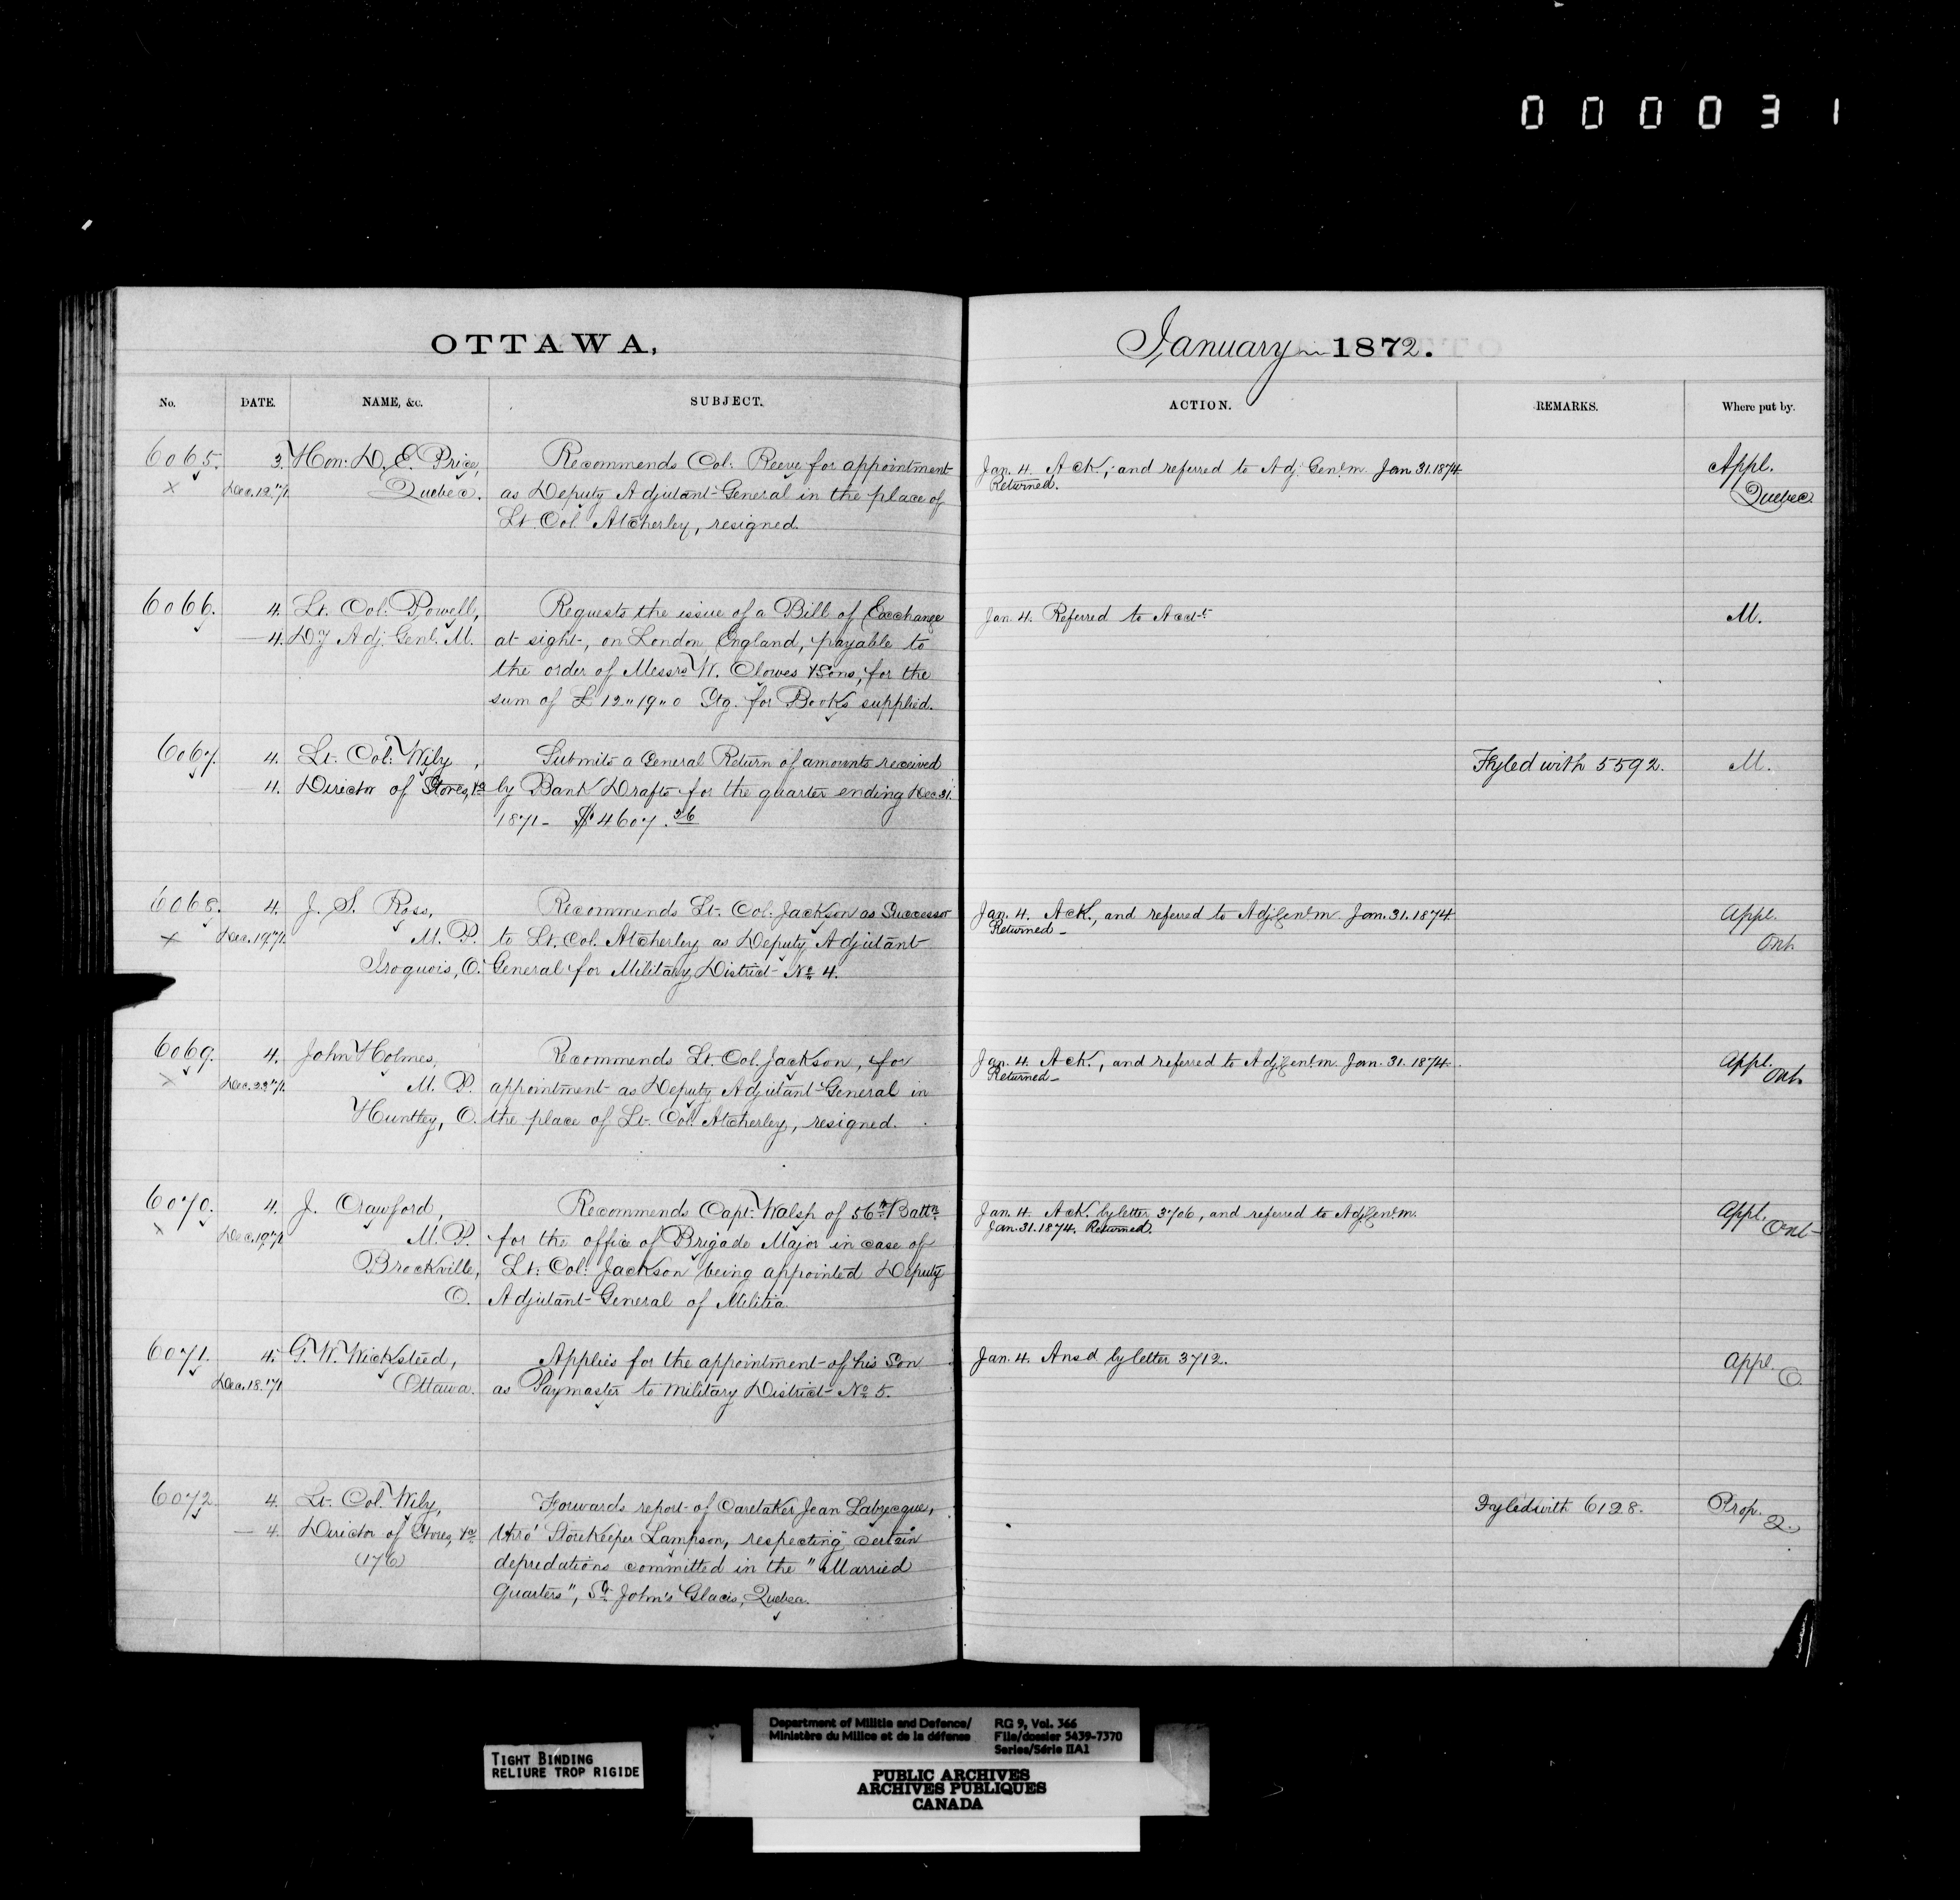 000031
OTTAWA,
January 1872.
No. DATE. NAME, &c. SUBJECT. ACTION. REMARKS. Where put by.
6065. 3. Hon: D. E. Price, Recommends Col: Reeve for appointment Jan. 4. Ack., and referred to Adj. Genl. m. Jan 31. 1874 Appl.
x Dec. 12. '71. Quebec. as Deputy Adjutant-General in the place of Returned. Quebec.
Lt. Col. Atcherley, resigned.
6066. 4. Lt. Col: Powell, Requests the issue of a Bill of Exchange Jan. 4. Referred to Acct. M.
— 4. Dy Adj. Genl. M. at sight, on London England, payable to
the order of Messrs W. Clowes & Sons, for the
sum of £12"19"0 Stg. for Books supplied.
6067. 4. Lt. Col: Wily, Submits a General Return of amounts received Fyled with 5592. M.
4. Director of Stores, &c by Bank Drafts for the quarter ending Dec 31.
1871 - $4607.26
6068. 4. J. S. Ross, Recommends Lt. Col. Jackson as Successor Jan. 4. Ack., and referred to Adj. Genl. m. Jan. 31. 1874. Appl.
x Dec. 19. '71. M. P. to Lt. Col. Atcherley as Deputy Adjutant- Returned - Ont.
Iroquois, O. General for Military District No 4.
6069. 4. John Holmes, Recommends Lt. Col. Jackson, for Jan. 4. Ack., and referred to Adj. Genl. m. Jan. 31. 1874. Appl.
x Dec. 23. '71. M. P. appointment as Deputy Adjutant-General in Returned - Ont.
Huntley, O. the place of Lt. Col. Atcherley, resigned.
6070. 4. J. Crawford, Recommends Capt. Walsh of 56th Battn Jan. 4. Ack. by letter 3706, and referred to Adj. Genl. m. Appl.
x Dec. 19. '71 M. P. for the office of Brigade Major in case of Jan. 31. 1874. Returned. Ont
Brockville, Lt. Col: Jackson being appointed Deputy
O. Adjutant-General of Militia.
6071. 4. G. W. Wicksteed, Applies for the appointment of his Son Jan. 4. Ansd by letter 3712. Appl.
Dec. 18. '71 Ottawa. as Paymaster to Military District No 5. O.
6072 4. Lt. Col. Wily, Forwards report of Caretaker Jean Labrecque, Fyled with 6128. Prop.
— 4. Director of Stores, &c thro' Storekeeper Lampson, respecting certain Q.
(176) depredations committed in the "Married
Quarters", St. John's Glacis, Quebec.
TIGHT BINDING
RELIURE TROP RIGIDE
Department of Militia and Defence/ RG 9, Vol. 366
Ministère du Milice et de la défense File/dossier 5439-7370
Series/Série IIA1
PUBLIC ARCHIVES
ARCHIVES PUBLIQUES
CANADA